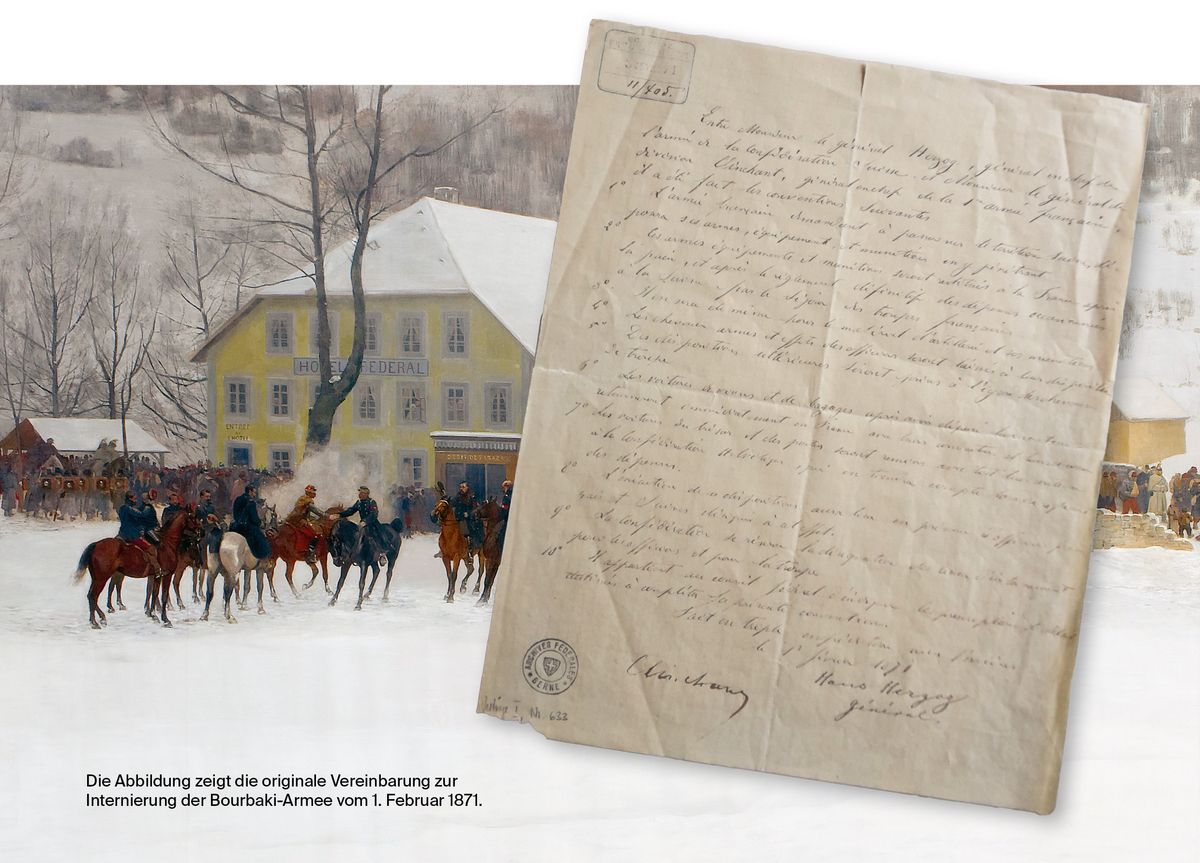 11/405.
Entre Monsieur le général Herzog, général en chef de
l'armée de la Confédération Suisse et Monsieur le général de
division Clinchant, général en chef de la 1re armée française,
il a été fait les conventions suivantes
1° L'armée française demandant à passer sur le territoire Suisse, dé-
posera ses armes, équipements et munitions en y pénétrant
2° les armes équipements et munitions seront restitués à la France après
la paix, et après le règlement définitif des dépenses occasionnées
à la Suisse par le séjour des troupes françaises
3° Il en sera de même pour le matériel d'artillerie et ses munitions
4° Les chevaux armes et effets des officiers seront laissés à leur disposition
5° Des dispositions ultérieures seront prises à l'égard des chevaux
de troupe
6° Les voitures de vivres et de bagages après avoir déposé leur contenu
retourneront immédiatement en France avec leurs conducteurs et chevaux
7° Les voitures du trésor et des postes seront remises avec tout leur contenu
à la Confédération Helvétique qui en tiendra compte
des dépenses.
8° L'exécution de ces dispositions aura lieu en présence d'officiers fran-
çais et Suisses désignés à cet effet.
9° La confédération se réserve la désignation des lieux d'internement
pour les officiers et pour la troupe
10° Il appartient au conseil fédéral d'indiquer les prescriptions de détail
destinées à compléter la présente convention.
Fait en triple expédition aux Verrières
le 1er février 1871
Clinchant
Hans Herzog
général.
ARCHIVES FEDERALES
BERNE
Nr. 633
HOTEL FÉDÉRAL
ENTREE
HOTEL
Die Abbildung zeigt die originale Vereinbarung zur
Internierung der Bourbaki-Armee vom 1. Februar 1871.